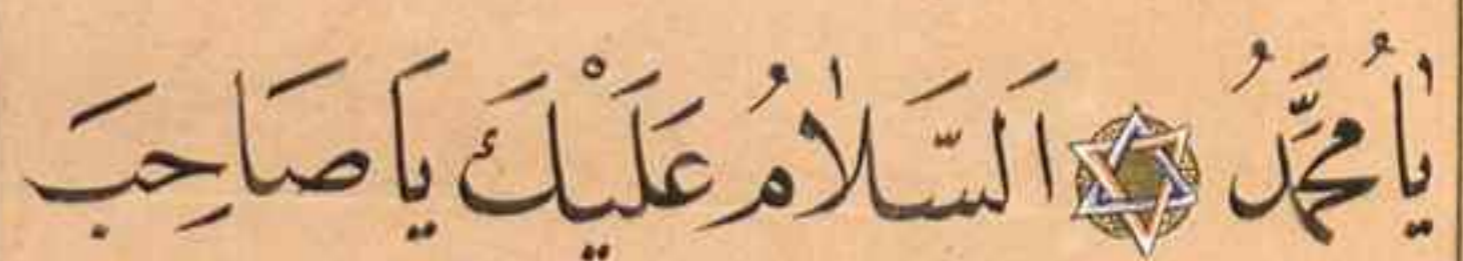 يَا مُحَمَّدُ اَلسَّلَامُ عَلَيْكَ يَا صَاحِبَ